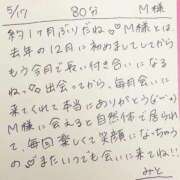 5/17　80分　M様
約1ヶ月ぶりだね♡♡M様とは
去年の12月に初めましてしてから
もう今月で長い付き合いになる
ねっ♡出会ってから、毎月会いに
来てくれて本当にありがとうなー♡
M様に会えると自然体で居られ
て、毎回楽しくて笑顔になっちゃう
の♡またいつでも会いに来てね!!
みと